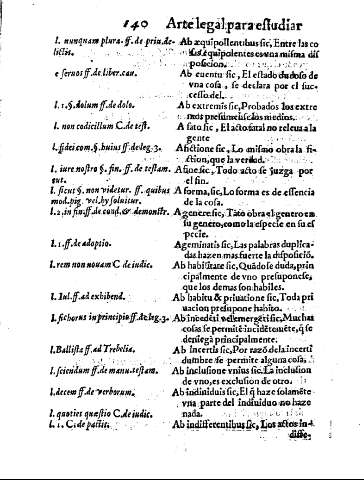 140 Arte legal para estudiar
l. nunquam plura. ff. de priu. de-
lictis.
Ab æquipollentibus sic, Entre las co
sas equipolentes es vna misma dis
posicion.
e seruos ff. de liber. cau.
Ab euentu sic, El estado dudoso de
vna cosa, se declara por el suc-
cesso del.
l. 1. §. dolum ff. de dolo.
Ab extremis sic, Probados los extre
mos presumense los medios.
l. non codicillum C. de test.
A fato sic, El acto final no releua a la
gente
l. fidei com. §. huius ff. de leg. 3.
A fictione sic, Lo mismo obra la fi-
ction, que la verdad.
l. iure nostro §. fin. ff. de testam.
tut.
A fine sic, Todo acto se juzga por
el fin.
l. sicut §. non videtur. ff. quibus
mod. pig. vel hy soluitur.
A forma, sic, Lo forma es de essencia
de la cosa.
l. 2, in fin. ff. de cond. & demonstr.
A genere sic, Tāto obra el genero en
su genero, como la especie en su es
pecie.
l. 1. ff. de adoptio.
A geminatis sic, Las palabras duplica-
das hazen mas fuerte la disposiciō.
l. rem non nouam C. de iudic.
Ab habilitate sic, Quādo se duda, prin
cipalmente de vno presuponese,
que los demas son habiles.
l. Iul. ff. ad exhibend.
Ab habitu & priuatione sic, Toda pri
uacion presupone habito.
l. si chorus in principio ff. de leg. 3.
Ab incedēti vel emergēti sic, Muchas
cosas se permitē incidētemēte, q̄ se
deniegā principalmente.
l. Ballista ff. ad Trebelia.
Ab incertis sic, Por razō de la incerti
dumbre se permite alguna cosa.
l. sciendum ff. de manu. testam.
Ab inclusione vnius sic, La inclusion
de vno, es exclusion de otro.
l. decem ff. de verborum.
Ab indiuiduis sic, El q̄ haze solamēte
vna parte del indiuiduo no haze
nada.
l. quoties quæstio C. de iudic.
l. 1. C. de pactis.
Ab indifferentibus sic, Los actos in-
diffe-